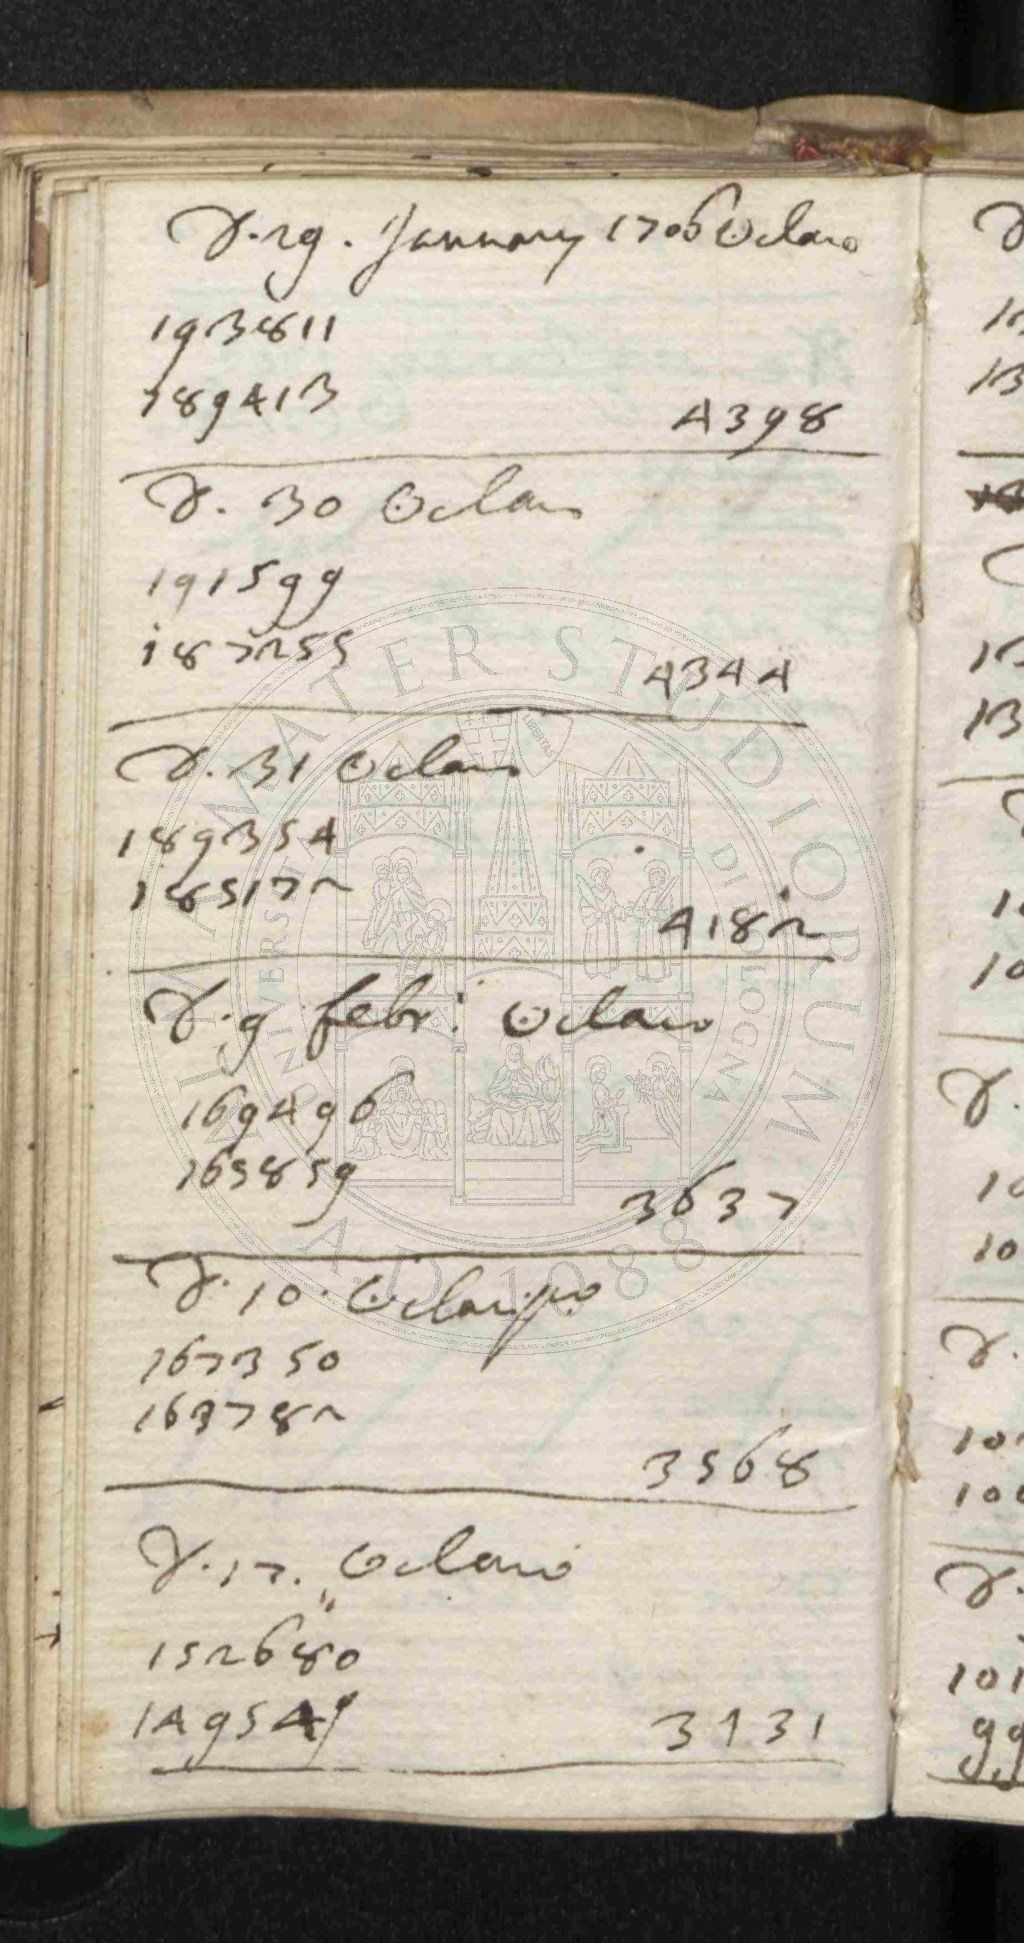 D. 29. January 1706 ☉ claro
193811
189413 4398
D. 30 ☉ claro
191599
187255 4344
D. 31 ☉ claro
189354
185172 4182
D. 9 febr: ☉ claro
169496
165859 3637
D. 10. ☉ clariss.o
167350
163782 3568
D. 17. ☉ claro
152680
149549 3131
ALMA MATER STUDIORUM
A.D. 1088
UNIVERSITÀ DI BOLOGNA